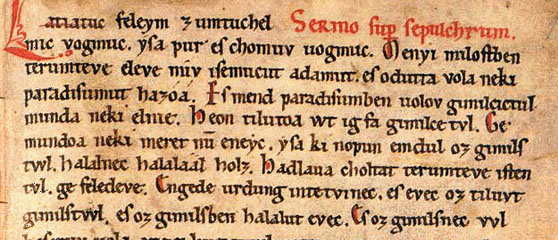 Latiatuc feleym zumtuchel Sermo sup sepulchrum.
mic vogmuc. ysa pur es chomuv uogmuc. Menyi miloftben
terumteve eleve miv isemucut adamut. es odutta vola neki
paradisumut hazoá. Es mend paradisumben uolov gimilcictul
munda neki elnie. Heon tilutoa wt ig fa gimilce tvl. Ge
mundoa neki meret nū eneyc. ysa ki nopun emdul oz gimils
twl. halalnec halalaal holz. Hadlaua choltat terumteve isten
tvl. ge feledeve. Engede urdung intetvinec. es evec oz tiluvt
gimilstwl. es oz gimilsben halalut evec. Es oz gimilsnec vvl